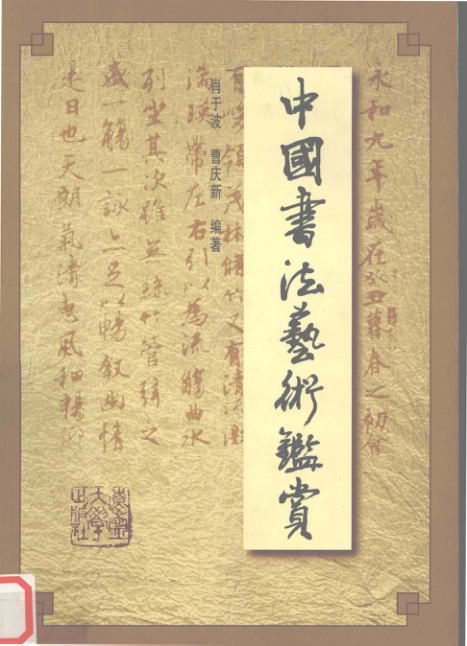 永和九年歲在癸丑暮春之初會
中國書法藝術鑑賞
肖于波 曹庆新 编著
有峻領茂林脩竹又有清流激
湍映帶左右引以為流觴曲水
列坐其次雖無絲竹管弦之
盛一觴一詠亦足以暢敘幽情
是日也天朗氣清惠風和暢
大學
出版社